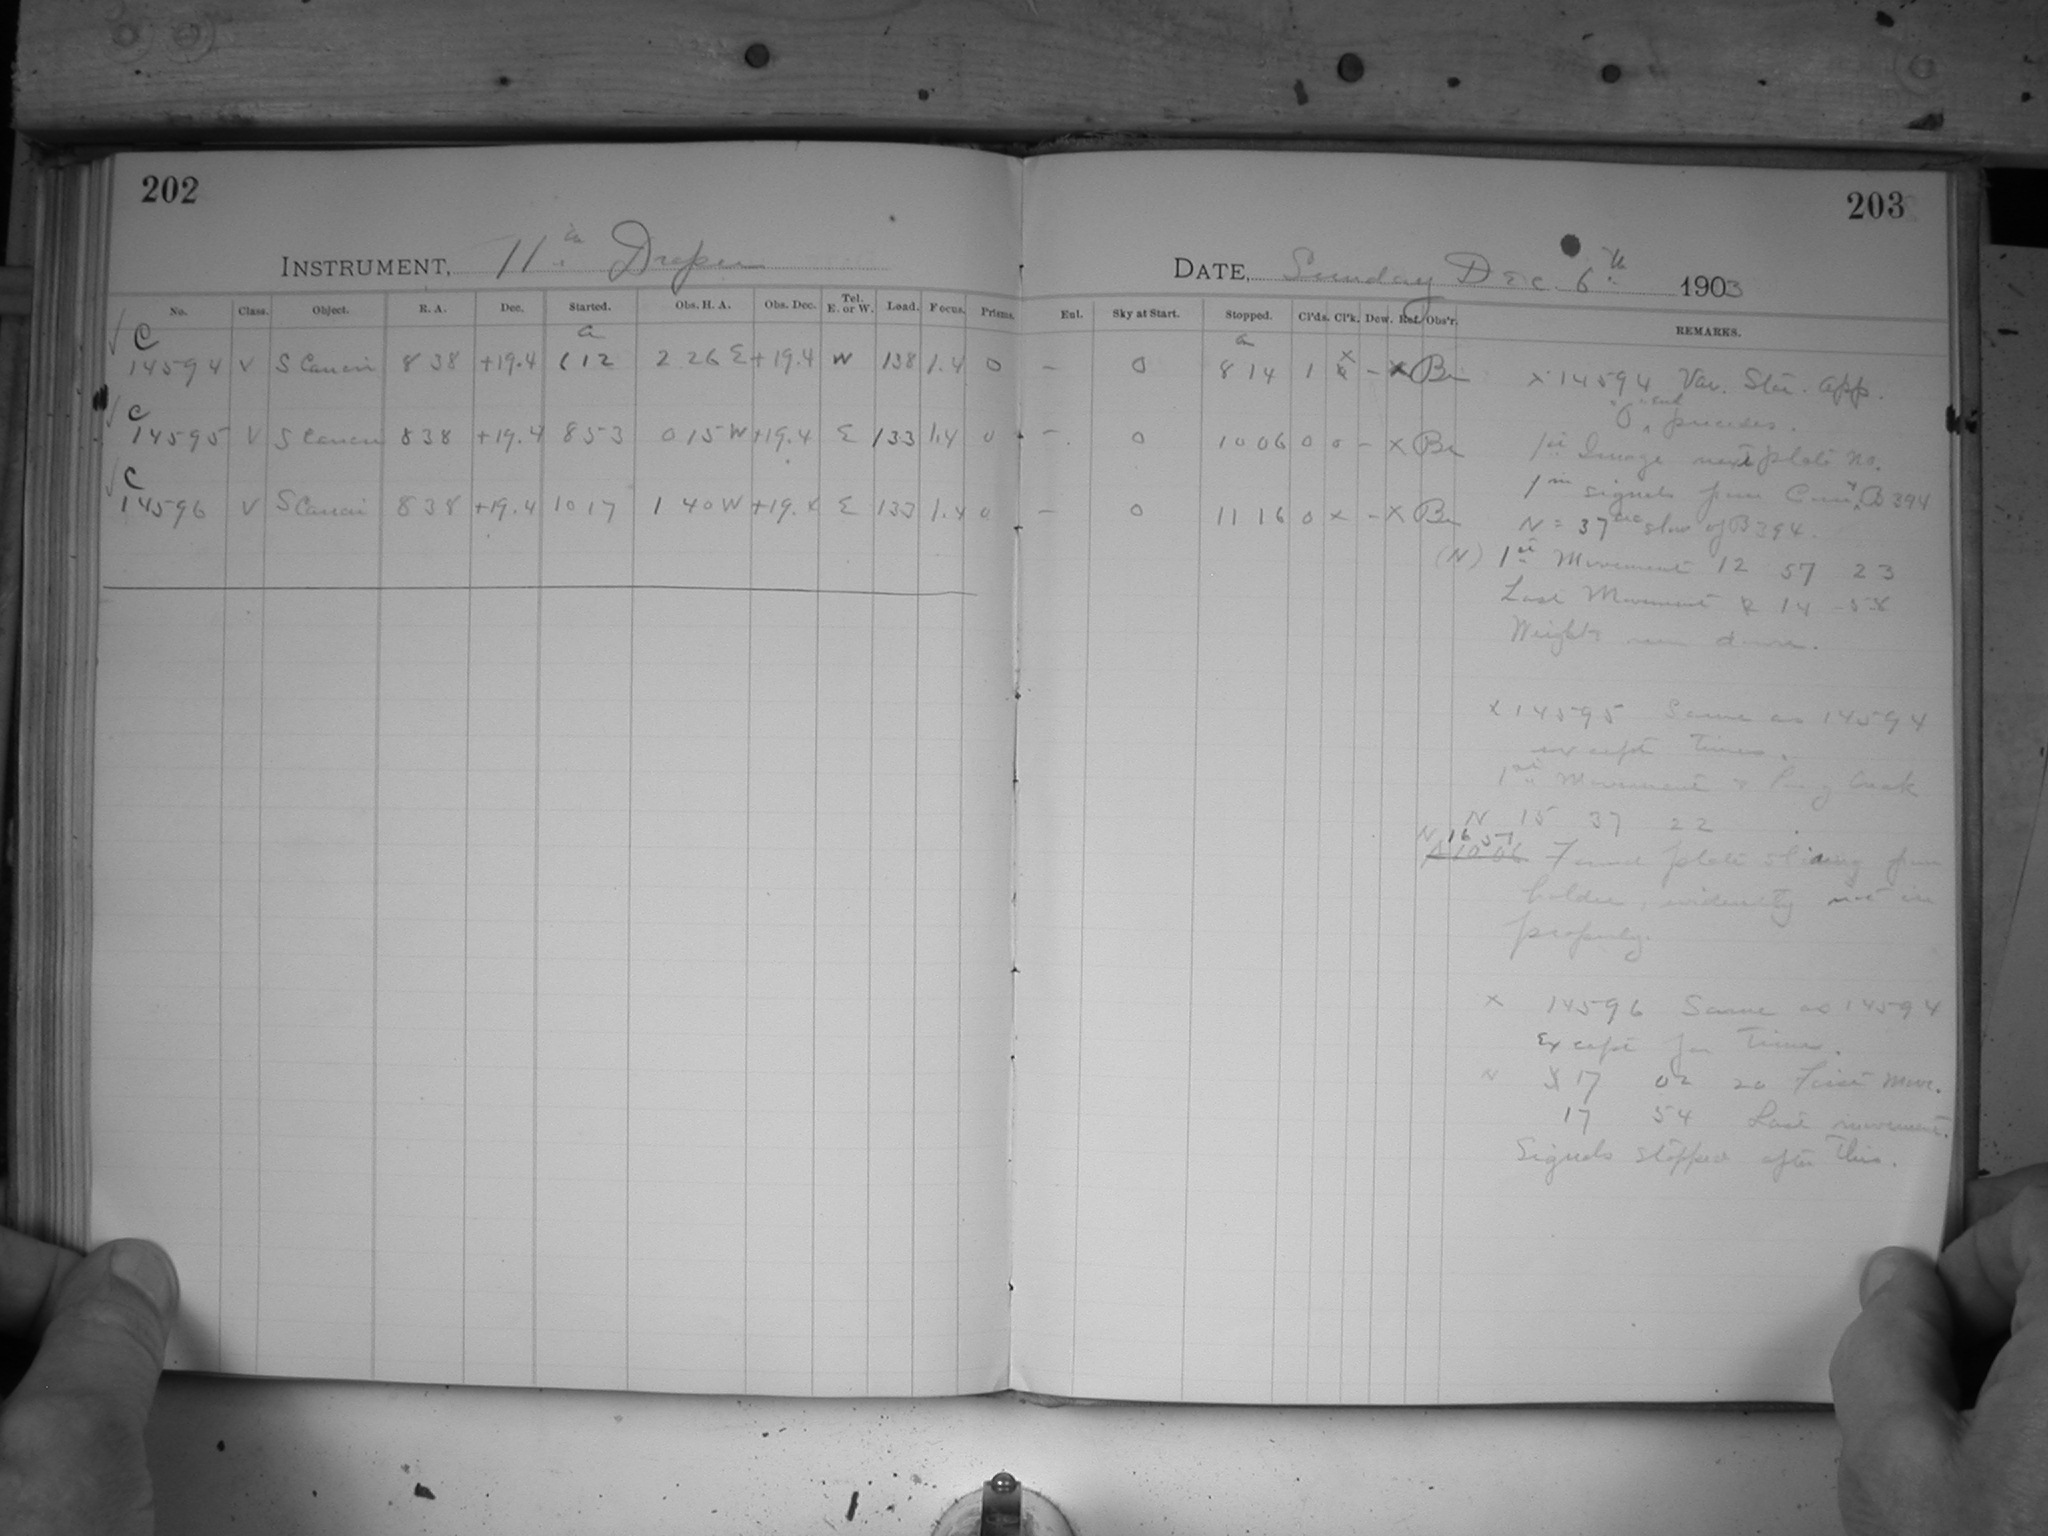 202
INSTRUMENT, 11 in Draper
No. Class. Object. R. A. Dec. Started. Obs. H. A. Obs. Dec. Tel. E. or W. Load. Focus. Prisms.
C a
14594 V S Cancri 8 38 +19.4 6 12 2 26 E +19.4 W 138 1.4 0
C
14595 V S Cancri 8 38 +19.4 8 53 0 15 W +19.4 E 133 1.4 0
C
14596 V S Cancri 8 38 +19.4 10 17 1 40 W +19.4 E 133 1.4 0
203
DATE, Sunday Dec. 6th 1903
Enl. Sky at Start. Stopped. Cl'ds. Cl'k. Dew. Ref. Obs'r. REMARKS.
a
— 0 8 14 1 x – x Be
— 0 10 06 0 0 – x Be
— 0 11 16 0 x – x Be
x 14594 Var. Star. app.
"0" end precedes.
1st Image next plate no.
1m signals from B394
N = 37 sec slow of B394.
(N) 1st Movement 12 57 23
Last Movement 14 58
Weights run down.
x 14595 Same as 14594
except times.
1st Movement & long break
N 15 37 22
N 16 51
10 06 Found plate sliding from
holder, evidently not in
properly.
x 14596 Same as 14594
Except for Times.
N 17 02 20 First Move.
17 54 Last movement.
Signals stopped after this.